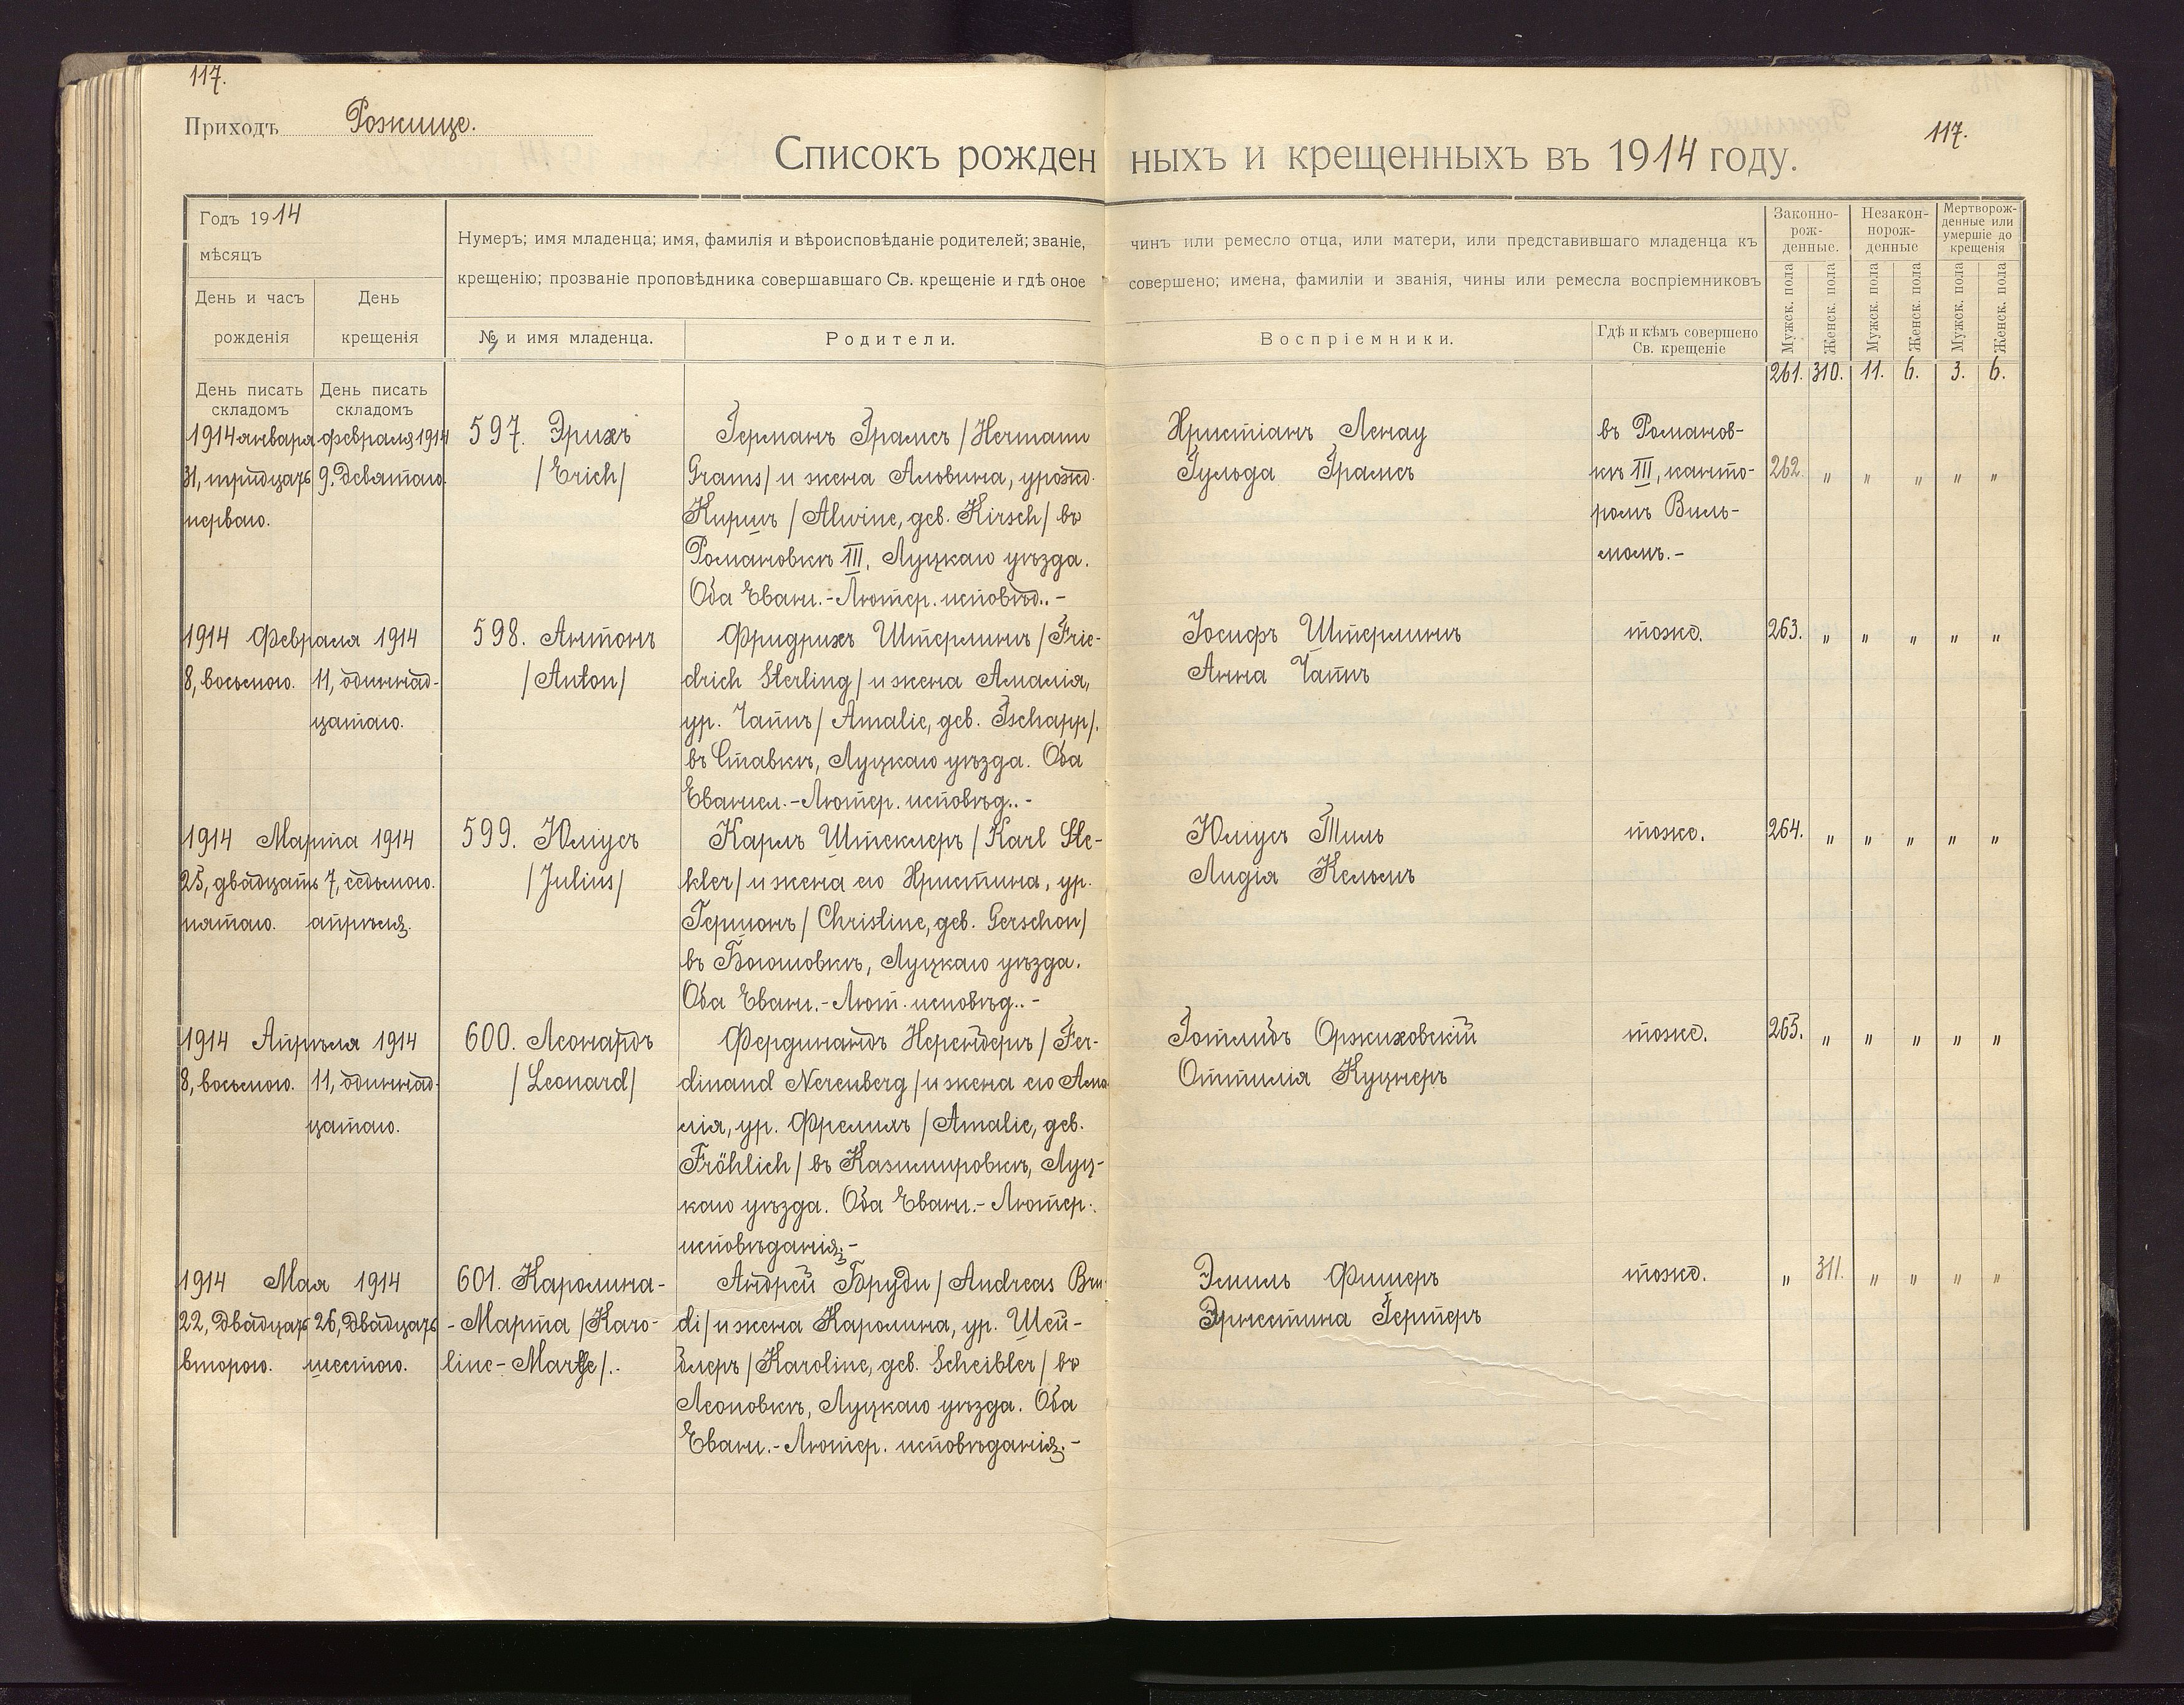 117.
Приходъ Рожище.
117.
Списокъ рожденныхъ и крещенныхъ въ 1914 году.
Годъ 1914
мѣсяцъ
День и часъ
рожденія
День
крещенія
Нумеръ; имя младенца; имя, фамилія и вѣроисповѣданіе родителей; званіе, чинъ или ремесло отца, или матери, или представившаго младенца къ
крещенію; прозваніе проповѣдника совершавшаго Св. крещеніе и гдѣ оное совершено; имена, фамиліи и званія, чины или ремесла воспріемниковъ
№ и имя младенца.
Родители.
Воспріемники.
Гдѣ и кѣмъ совершено
Св. крещеніе
Законно-
рож-
денные.
Незакон-
норож-
денные
Мертворож-
денные или
умершіе до
крещенія
Мужск. пола
Женск. пола
Мужск. пола
Женск. пола
Мужск. пола
Женск. пола
261. 310. 11. 6. 3. 6.
День писать
складомъ
День писать
складомъ
1914 января
31, тридцать
перваго.
февраля 1914
9, девятаго.
597. Эрихъ
/Erich/
Германъ Грамсъ /Hermann
Grams/ и жена Альвина, урожд.
Киршъ /Alwine, geb. Kirsch/ въ
Романовкѣ III, Луцкаго уѣзда.
Оба Еванг.-Лютер. исповѣд.. -
Христіанъ Ленау
Гульда Грамсъ
въ Романов-
кѣ III, канто-
ромъ Виль-
момъ.-
262. „ „ „ „ „
1914 Февраля 1914
8, восьмого.
11, одиннад-
цатаго.
598. Антонъ
/Anton/
Фридрихъ Штерлингъ /Frie-
drich Sterling/ и жена Амалія,
ур. Чаппъ /Amalie, geb. Tschapp/.
въ Ставкѣ, Луцкаго уѣзда. Оба
Евангел.-Лютер. исповѣд.. -
Іосифъ Штерлингъ
Анна Чаппъ
тожд.
263. „ „ „ „ „
1914 Марта 1914
25, двадцать
пятаго.
7, седьмого.
апрѣля.
599. Юліусъ
/Julius/
Карлъ Штеклеръ /Karl Ste-
kler/ и жена его Христина, ур.
Гершонъ /Christine, geb. Gerschon/
въ Богошовкѣ, Луцкаго уѣзда.
Оба Еванг.-Лют. исповѣд.. -
Юліусъ Тиль
Лидія Кельмъ
тоже.
264. „ „ „ „ „
1914 Апрѣля 1914
8, восьмого.
11, одиннад-
цатаго.
600. Леонардъ
/Leonard/
Фердинандъ Неренбергъ /Fer-
dinand Nerenberg/ и жена его Ама-
лія, ур. Фрелихъ /Amalie, geb.
Fröhlich/ въ Казимировкѣ, Луц-
каго уѣзда. Оба Еванг.-Лютер.
исповѣданія.-
Готлибъ Оржиховскій
Оттилія Куцнеръ
тожд.
265. „ „ „ „ „
1914 Мая 1914
22, двадцать
второго.
26, двадцать
шестого.
601. Каролина-
-Марта /Karo-
line-Marthe/.-
Андрей Бруди /Andreas Bru-
di/ и жена Каролина, ур. Шей-
блеръ /Karoline, geb. Scheibler/ въ
Леоновкѣ, Луцкаго уѣзда. Оба
Еванг.-Лютер. исповѣданія.-
Эмиль Фишеръ
Эрнестина Гертеръ
тожд.
„ 311. „ „ „ „